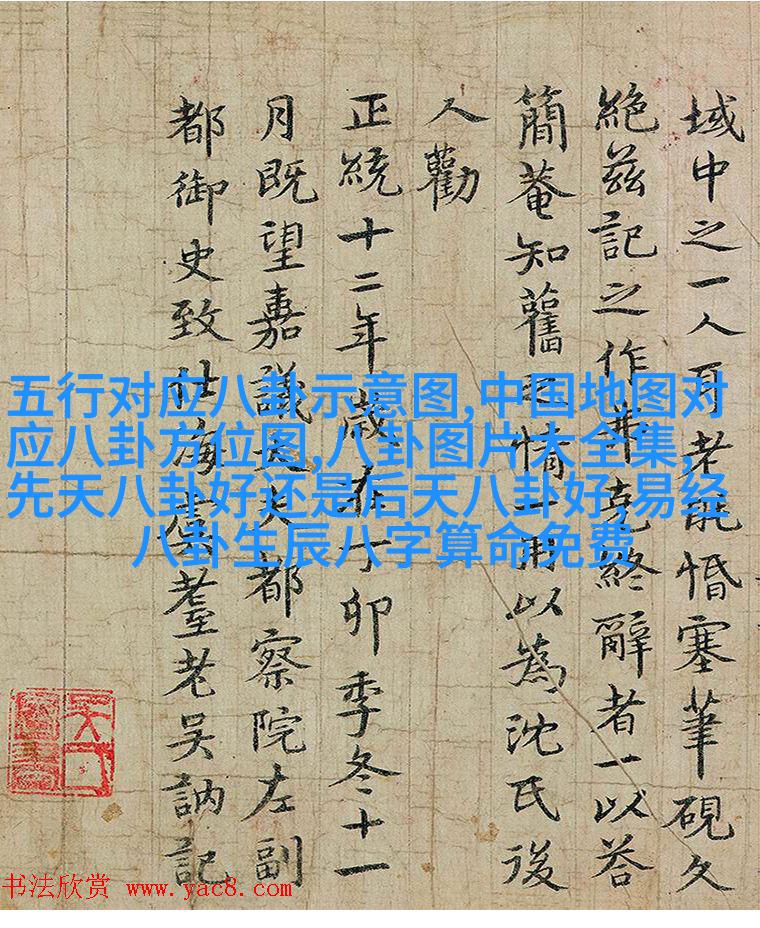 域中之一人耳老耗惛塞筆硯久
絶茲記之作弗克終辭者一以荅
簡菴知舊之情一用以為沈氏後
人勸
正統十二年歲在丁卯季冬十一
月既望嘉議大夫都察院左副
都御史致仕海虞耋老吳訥記
五行对应八卦示意图,中国地图对
应八卦方位图,八卦图片大全集,
先天八卦好还是后天八卦好,易经
八卦生辰八字算命免费
书法欣赏 www.yac8.com